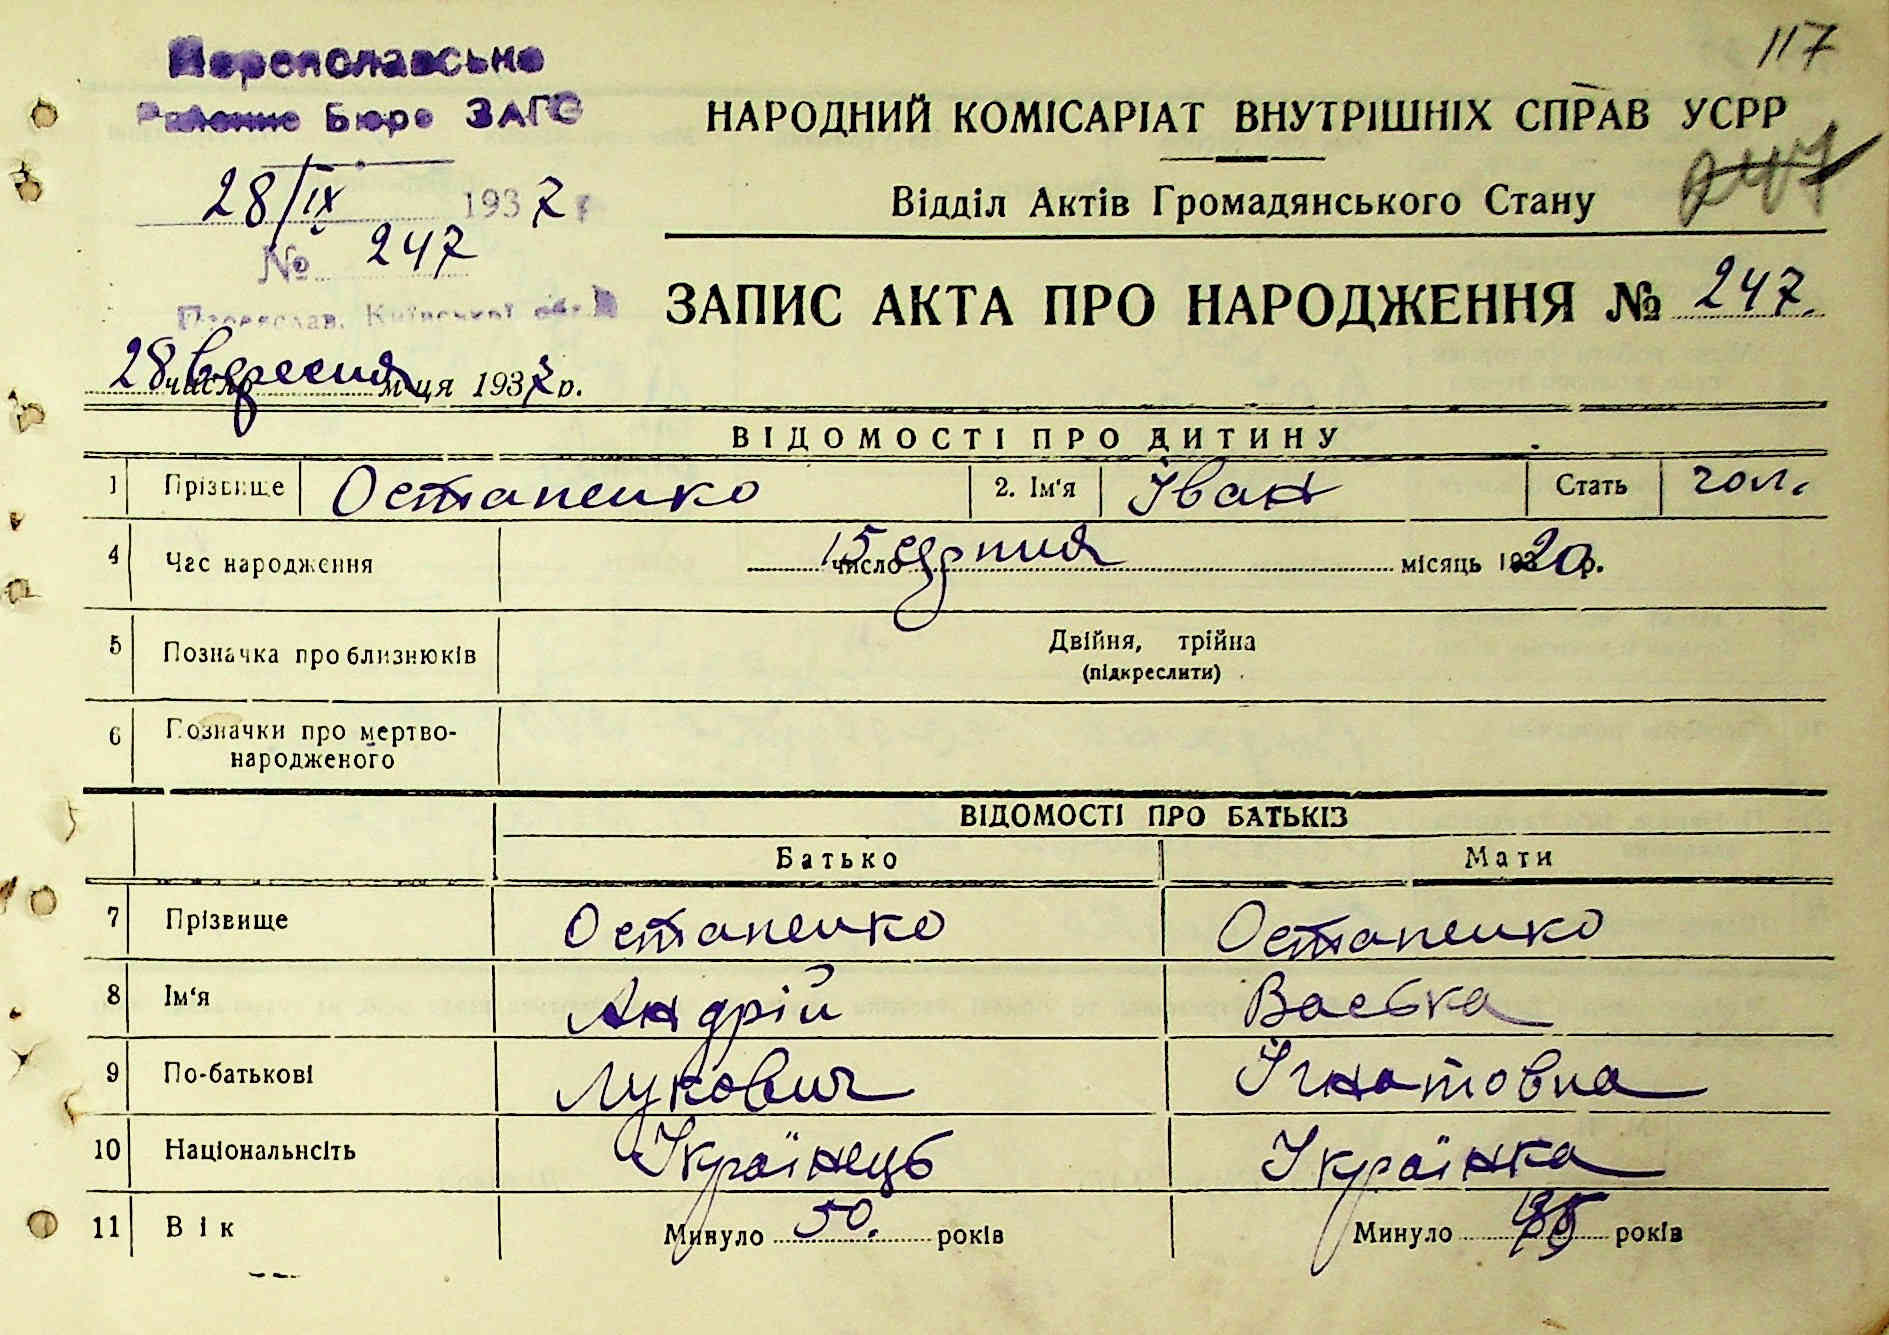 117
Переяславське
Районне Бюро ЗАГС
28/IX 1937 р
№ 247
Переяслав, Київської обл.
НАРОДНИЙ КОМІСАРІАТ ВНУТРІШНІХ СПРАВ УСРР
247
Відділ Актів Громадянського Стану
ЗАПИС АКТА ПРО НАРОДЖЕННЯ № 247.
28 число вересня м-ця 1937 р.
ВІДОМОСТІ ПРО ДИТИНУ
1 Прізвище Остапенко 2. Ім'я Іван Стать чол.
4 Час народження 15 число серпня місяць 1920 р.
5 Позначка про близнюків Двійня, трійна
(підкреслити)
6 Позначки про мертво-
народженого
ВІДОМОСТІ ПРО БАТЬКІВ
Батько Мати
7 Прізвище Остапенко Остапенко
8 Ім'я Андрій Васька
9 По-батькові Лукович Ігнатовна
10 Національнсіть Українець Українка
11 Вік Минуло 50. років Минуло років